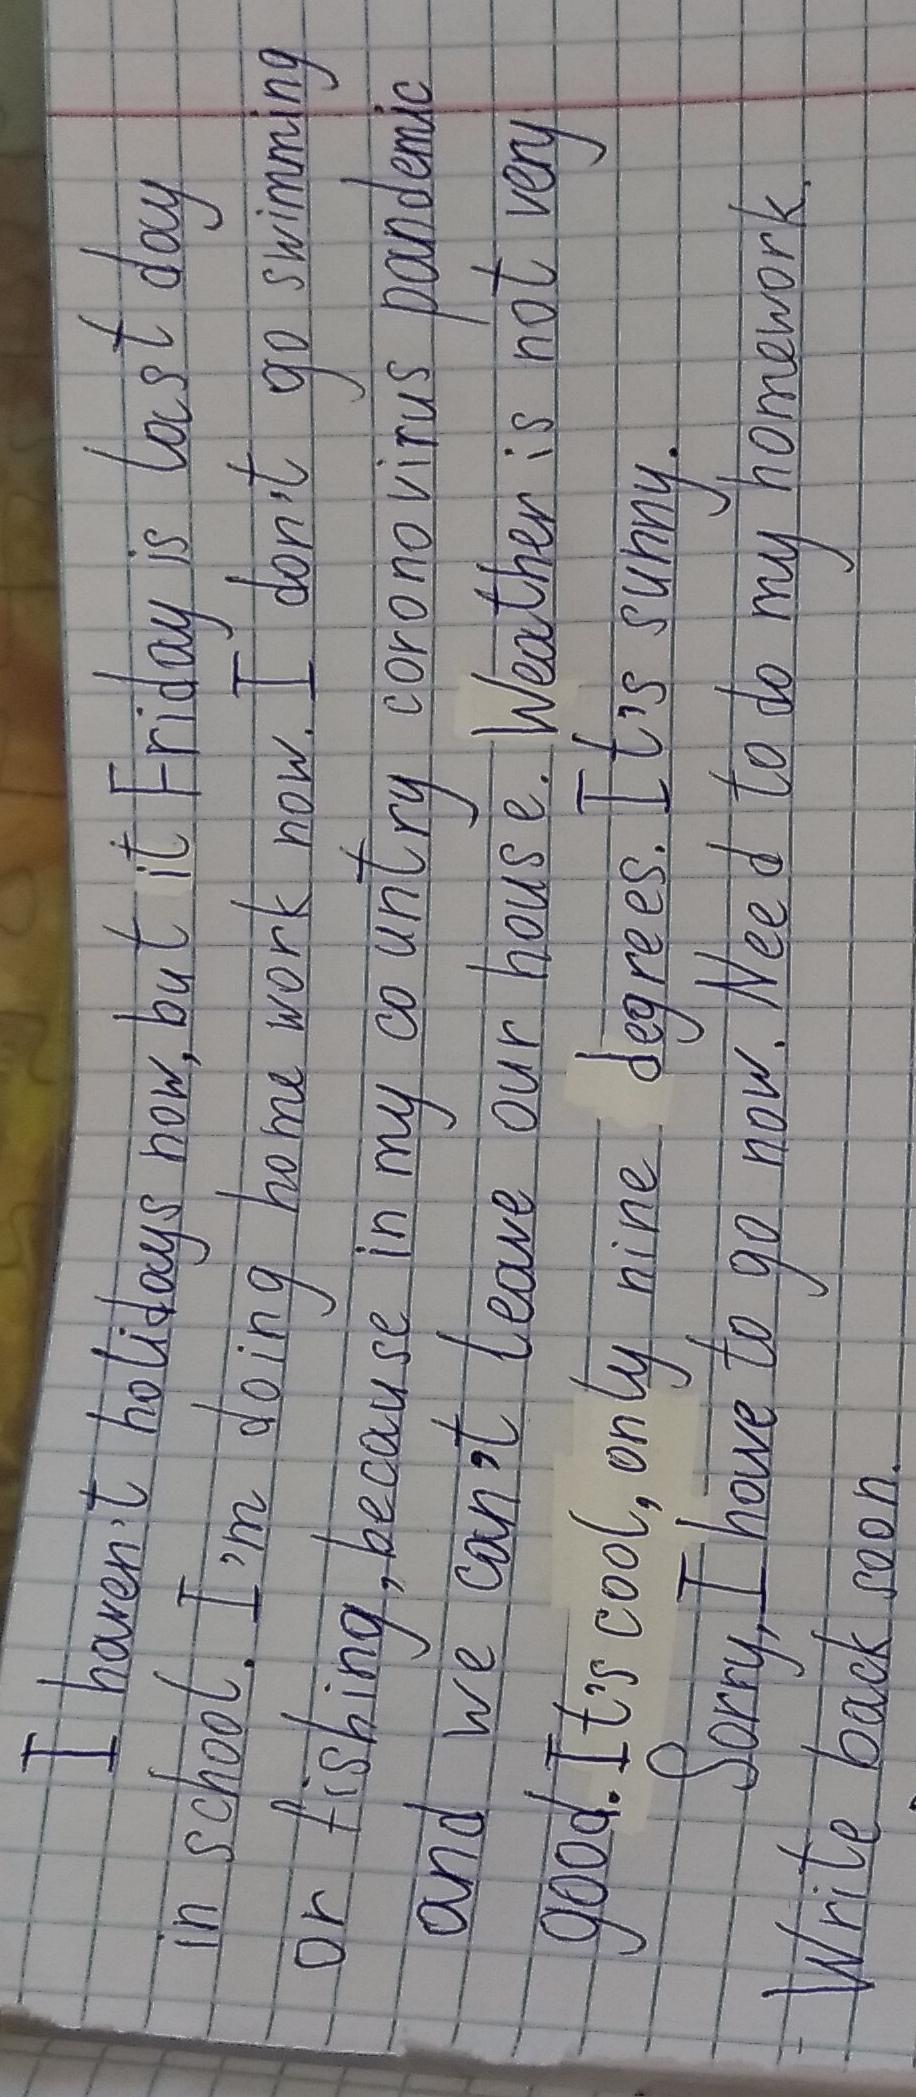 I haven't holidays now, but it Friday is last day
in school. I'm doing home work now. I don't go swimming
or fishing, because in my country coronovirus pandemic
and we can't leave our house. Weather is not very
good. It's cool, only nine degrees. It's sunny.
Sorry, I have to go now. Need to do my homework.
Write back soon.